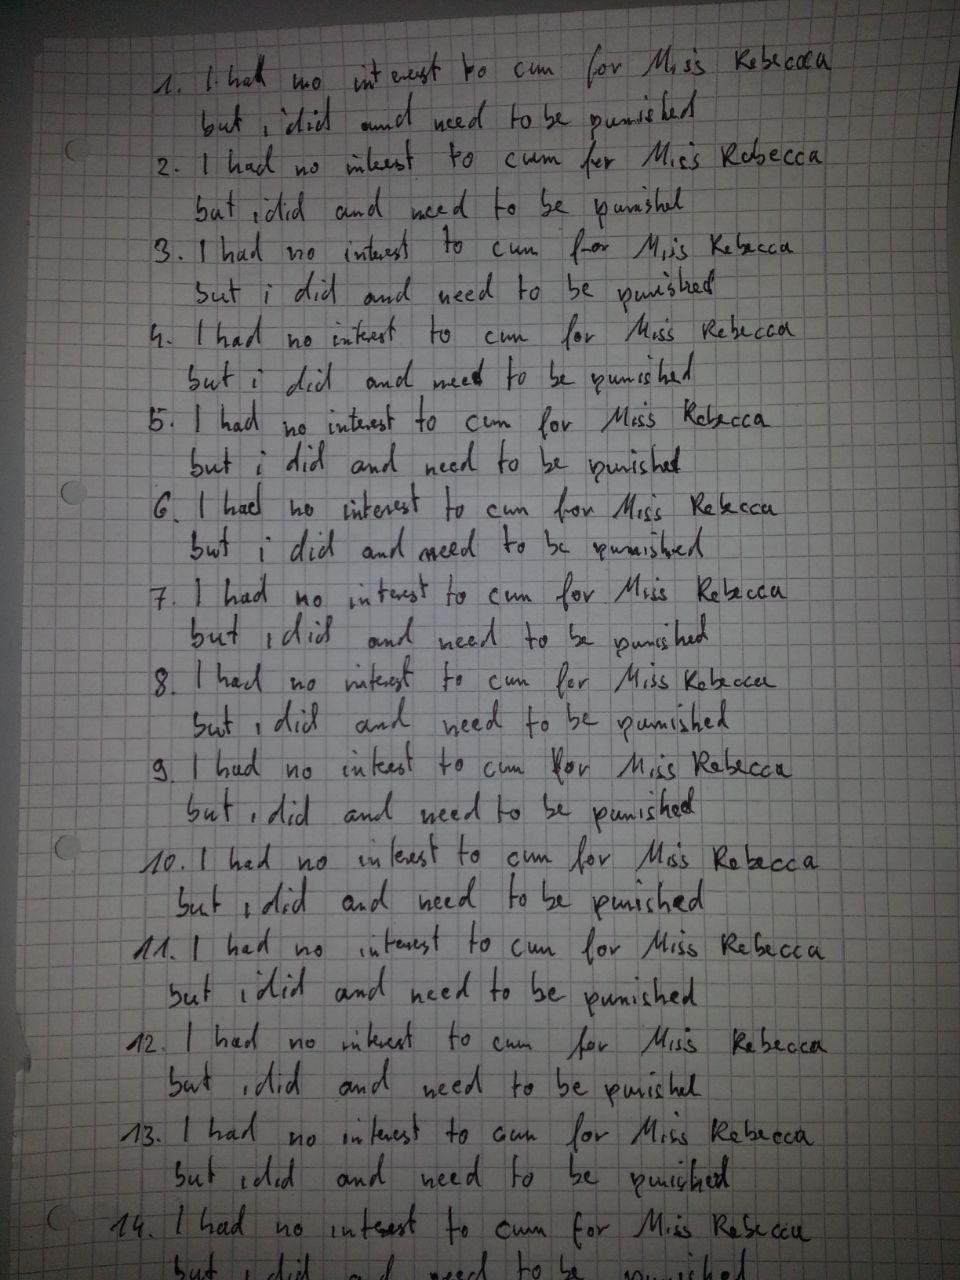 1. I had no interest to cum for Miss Rebecca
but i did and need to be punished
2. I had no interest to cum for Miss Rebecca
but i did and need to be punished
3. I had no interest to cum for Miss Rebecca
but i did and need to be punished
4. I had no interest to cum for Miss Rebecca
but i did and need to be punished
5. I had no interest to cum for Miss Rebecca
but i did and need to be punished
6. I had no interest to cum for Miss Rebecca
but i did and need to be punished
7. I had no interest to cum for Miss Rebecca
but i did and need to be punished
8. I had no interest to cum for Miss Rebecca
but i did and need to be punished
9. I had no interest to cum for Miss Rebecca
but i did and need to be punished
10. I had no interest to cum for Miss Rebecca
but i did and need to be punished
11. I had no interest to cum for Miss Rebecca
but i did and need to be punished
12. I had no interest to cum for Miss Rebecca
but i did and need to be punished
13. I had no interest to cum for Miss Rebecca
but i did and need to be punished
14. I had no interest to cum for Miss Rebecca
but i did and need to be punished